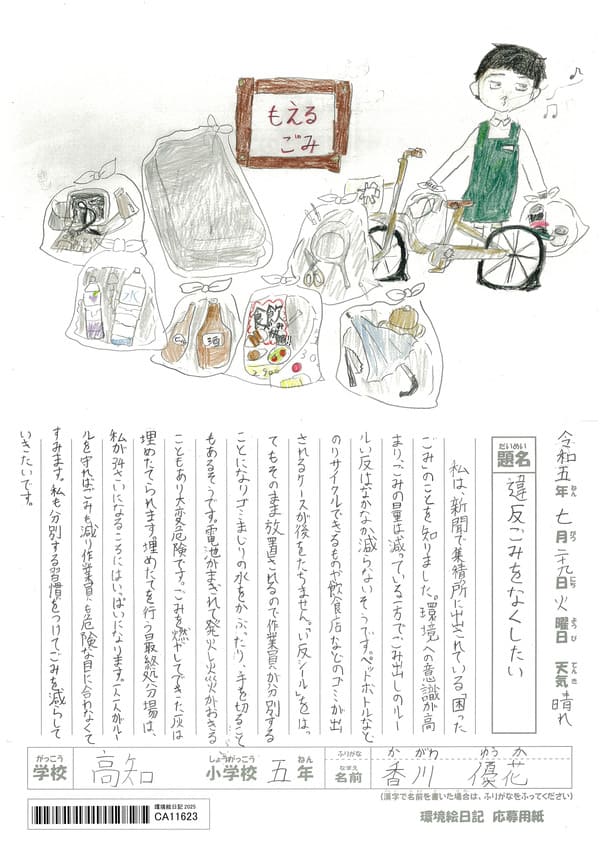 もえる
ごみ
水
酒
飲み
食べ
放題!!
令和五年 七月二十九日 火曜日 天気 晴れ
ねん がつ にち ようび てんき
だいめい
題名 違反ごみをなくしたい
私は、新聞で集積所に出されている「困った
ごみ」のことを知りました。環境への意識が高
まり、ごみの量は減っている一方でごみ出しのルー
ルい反はなかなか減らないそうです。ペットボトルなど
のリサイクルできるものや飲食店などのゴミが出
されるケースが後をたちません。「い反シール」をはっ
てもそのまま放置されるので作業員が分別する
ことになりゴミまじりの水をかぶったり、手を切ること
もあるそうです。電池がまぎれて発火し火災がおきる
こともあり大変危険です。ごみを燃やしてできた灰は
埋めたてられます埋めたてを行う最終処分場は、
私が34さいになるころにはいっぱいになります。一人一人がルー
ルを守ればごみも減り作業員も危険な目に合わなくて
すみます。私も分別する習慣をつけてごみを減らして
いきたいです。
がっこう しょうがっこう ねん ふりがな かがわ ゆうか
学校 高知 小学校 五年 なまえ 名前 香川 優花
(漢字で名前を書いた場合は、ふりがなをふってください)
環境絵日記 2025
CA11623
環境絵日記 応募用紙